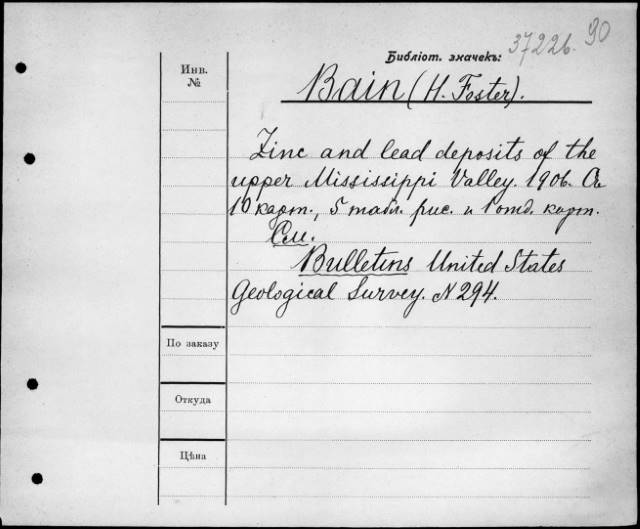 37226. 90
Библіот. значекъ:
Инв.
№
Bain (H. Foster).
Zinc and lead deposits of the
upper Mississippi Valley. 1906. Съ
10 карт., 5 табл. рис. и 1 отд. карт.
См.
Bulletins United States
Geological Survey. N 294.
По заказу
Откуда
Цѣна